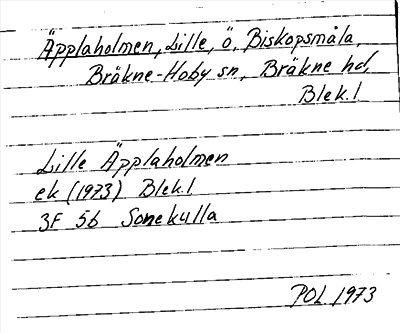 Äpplaholmen, Lille, ö, Biskopsmåla,
Bräkne-Hoby sn, Bräkne hd,
Blek.l
Lille Äpplaholmen
ek (1973) Blek.l
3F 5b Sonekulla
POL 1973